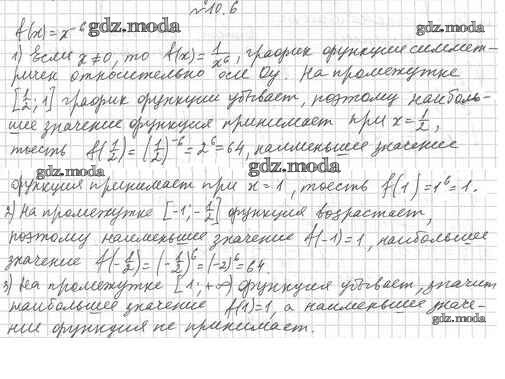 №10.6
f(x)=x⁻⁶ gdz.moda gdz.moda
1) Если x≠0, то f(x)=1/x⁶, график функции симмет-
ричен относительно оси Oy. На промежутке
[1/2; 1] график функции убывает, поэтому наиболь-
шее значение функция принимает при x=1/2,
тоесть f(1/2)=(1/2)⁻⁶=2⁶=64, наименьшее значение
gdz.moda gdz.moda
функция принимает при x=1, тоесть f(1)=1⁶=1.
2) На промежутке [-1; -1/2] функция возрастает,
поэтому наименьшее значение f(-1)=1, наибольшее
значение f(-1/2)=(-1/2)⁶=(-2)⁶=64.
3) На промежутке [1; +∞) функция убывает, значит
наибольшее значение f(1)=1, а наименьшее значе-
ние функция не принимает.
gdz.moda